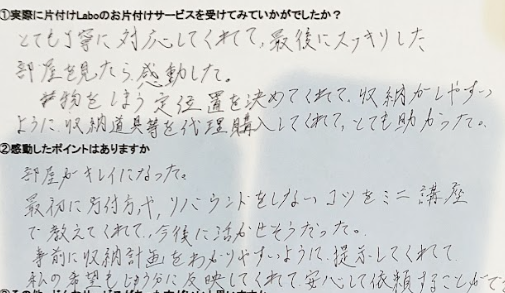 ①実際に片付けLaboのお片付けサービスを受けてみていかがでしたか？
とても丁寧に対応してくれて、最後にスッキリした
部屋を見たら、感動した。
物をしまう定位置を決めてくれて、収納がしやすい
ように、収納道具等を代理購入してくれて、とても助かった。
②感動したポイントはありますか
部屋がキレイになった。
最初に片付方や、リバウンドをしないコツをミニ講座
で教えてくれて、今後に活かせそうだった。
事前に収納計画をわかりやすいように、提示してくれて
私の希望も十分に反映してくれて、安心して依頼することができ